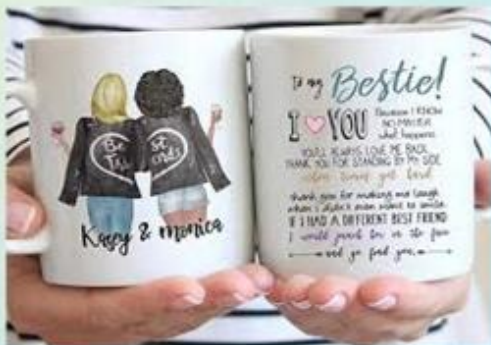 Be st
Fri ends
Kasey & monica
To my Bestie!
I YOU Because I KNOW
NO MATTER
what happens
YOU'LL ALWAYS LOVE ME BACK
THANK YOU FOR STANDING BY MY SIDE
when times get hard
thank you for making me laugh
when i didn't even want to smile
IF I HAD A DIFFERENT BEST FRIEND
I would punch her in the face
and go find you.